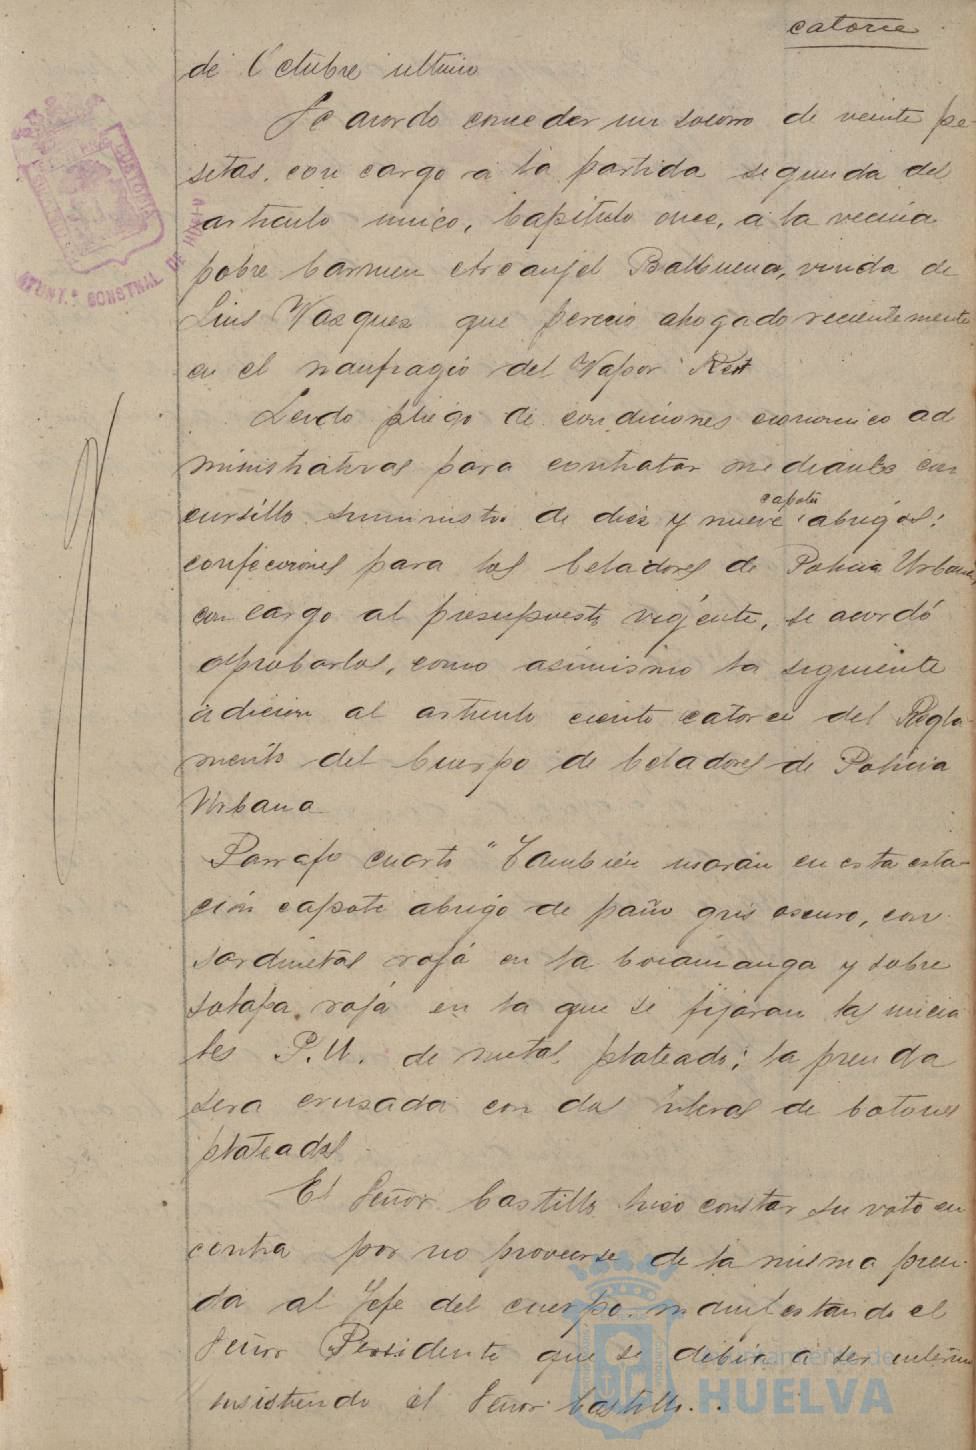 catorce
de Octubre ultimo
Se acordo conceder un socorro de veinte pe-
setas, con cargo a la partida segunda del
articulo unico, Capitulo once, a la vecina
pobre Carmen Arcangel Balbuena, viuda de
Luis Vazquez que perecio ahogado recientemente
en el naufragio del Vapor
Leido pliego de condiciones economico ad
ministrativas para contratar mediante con
cursillo suministro de diez y nueve capotes abrigos:
confecciones para los Celadores de Policia Urbana,
con cargo al presupuesto vigente, se acordó
aprobarlos, como asimismo la siguiente
adicion al articulo ciento catorce del Regla-
mento del Cuerpo de Celadores de Policia
Urbana
Parrafo cuarto "Tambien usarán en esta esta-
ción capote abrigo de paño gris oscuro, con
sardinetas roja en la bocamanga y sobre
solapa roja en la que se fijaran las inicia
les P.U. de metal plateado; la prenda
sera cruzada con dos hileras de botones
plateados
El Señor Castillo hizo constar su voto en
contra por no proveerse de la misma pren-
da al Jefe del cuerpo, manifestando el
Señor Presidente que se debia a ser interino
insistiendo el Señor Castillo..
AYUNT.º CONSTNAL DE HUELVA
Ayuntamiento de
HUELVA